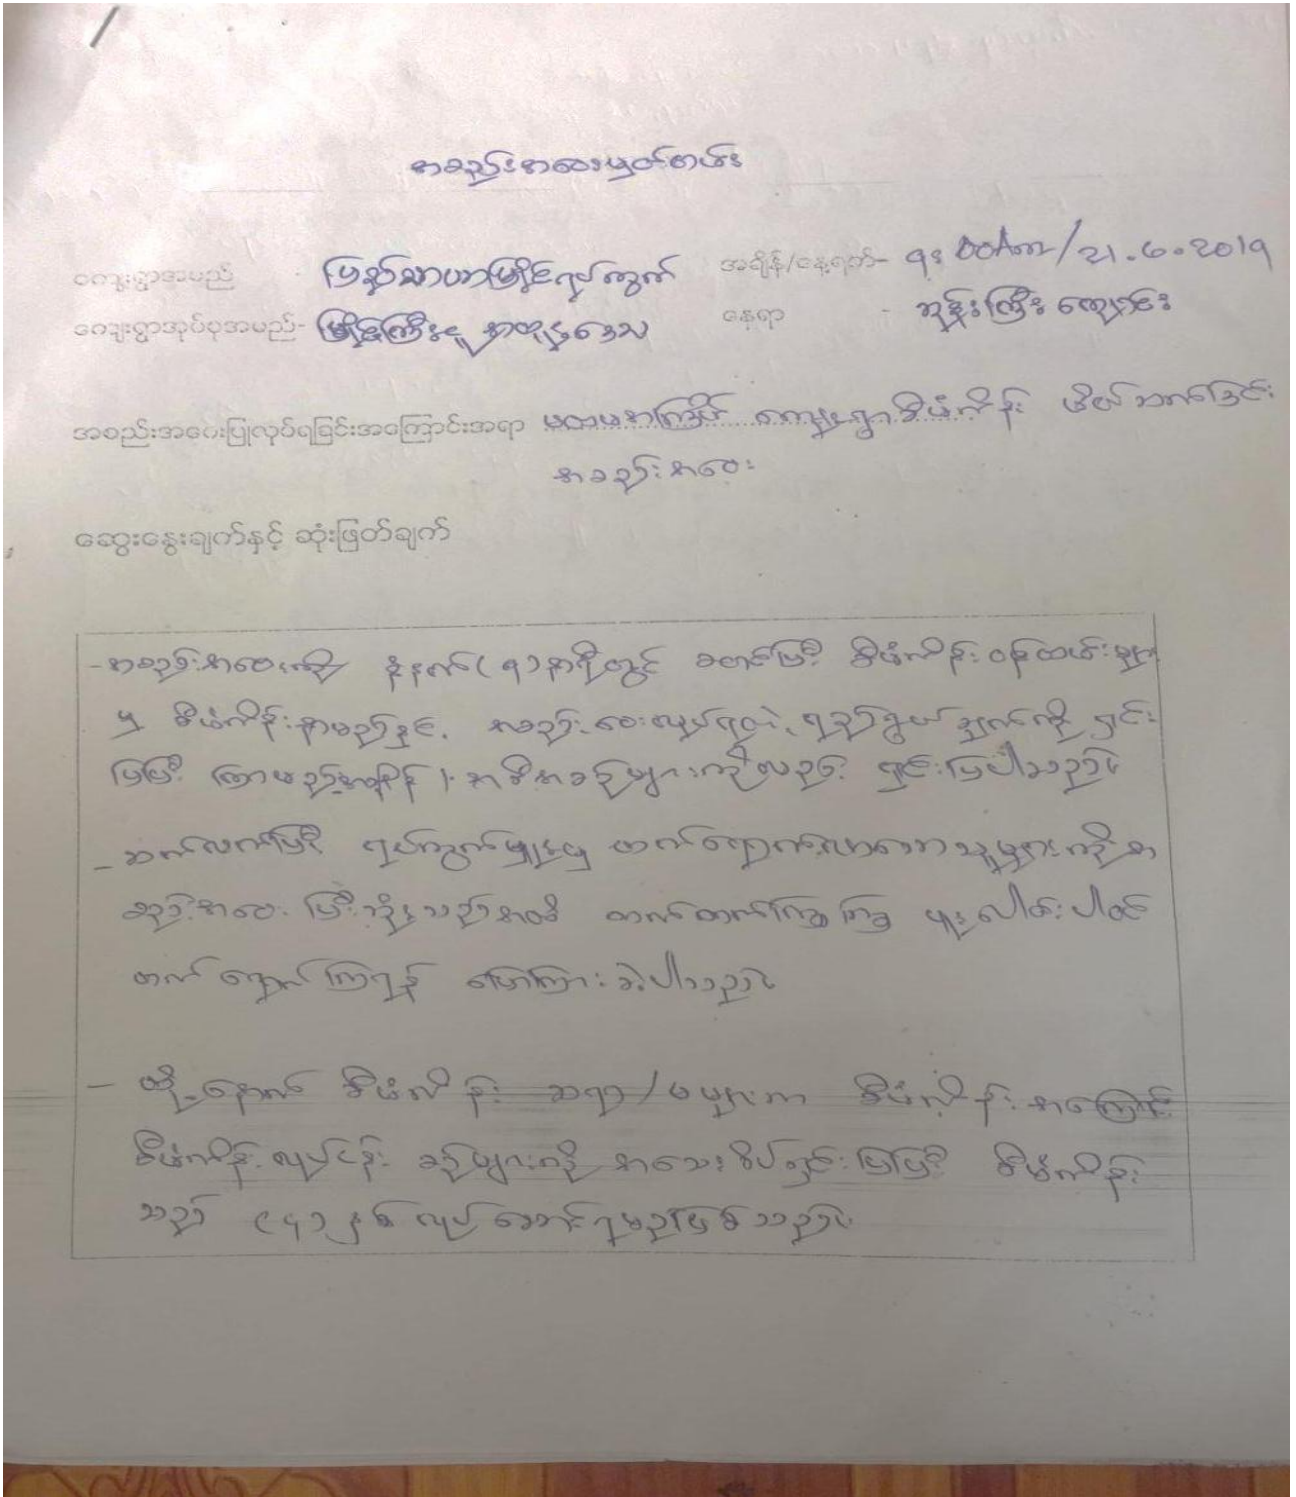 အစည်းအဝေးမှတ်တမ်း
ကျေးရွာအမည် - မြနပ်သာယာမြိုင်ရပ်ကွက် အချိန်/နေ့ရက်- ၅း 00Am / 21.6.2019
ကျေးရွာအုပ်စုအမည်- မြိုင်ကြီးငူ အထူးဒေသ နေရာ - ဘုန်းကြီးကျောင်း
အစည်းအဝေးပြုလုပ်ရခြင်းအကြောင်းအရာ ပထမအကြိမ် ကျေးရွာစီမံကိန်း မိတ်ဆက်ခြင်း
အစည်းအဝေး
ဆွေးနွေးချက်နှင့် ဆုံးဖြတ်ချက်
- အစည်းအဝေးကို နံနက် ( ၅ ) နာရီတွင် စတင်ပြီး စီမံကိန်းဝန်ထမ်းများ
မှ စီမံကိန်းနာမည်နှင့် အစည်းဝေးလုပ်ရတဲ့ ရည်ရွယ်ချက်ကို ရှင်း
ပြပြီး ကြာမည့်အချိန် ၊ အစီအစဉ်များကိုလည်း ရှင်းပြပါသည်။
- ဆက်လက်ပြီး ရပ်ကွက်လူမှုမှ တက်ရောက်လာသောသူများကို အ
စည်းအဝေး ပြီးဆုံးသည်အထိ တက်တက်ကြွကြွ ပူးပေါင်းပါဝင်
တက်ရောက်ကြရန် ပြောကြားခဲ့ပါသည်။
- ထို့နောက် စီမံကိန်း ဆရာ/မများက စီမံကိန်းအကြောင်း
စီမံကိန်းလုပ်ငန်း စဉ်များကို အသေးစိတ်ရှင်းပြပြီး စီမံကိန်း
သည် ( ၄ ) နှစ် လုပ်ဆောင်ရမည်ဖြစ်သည်။